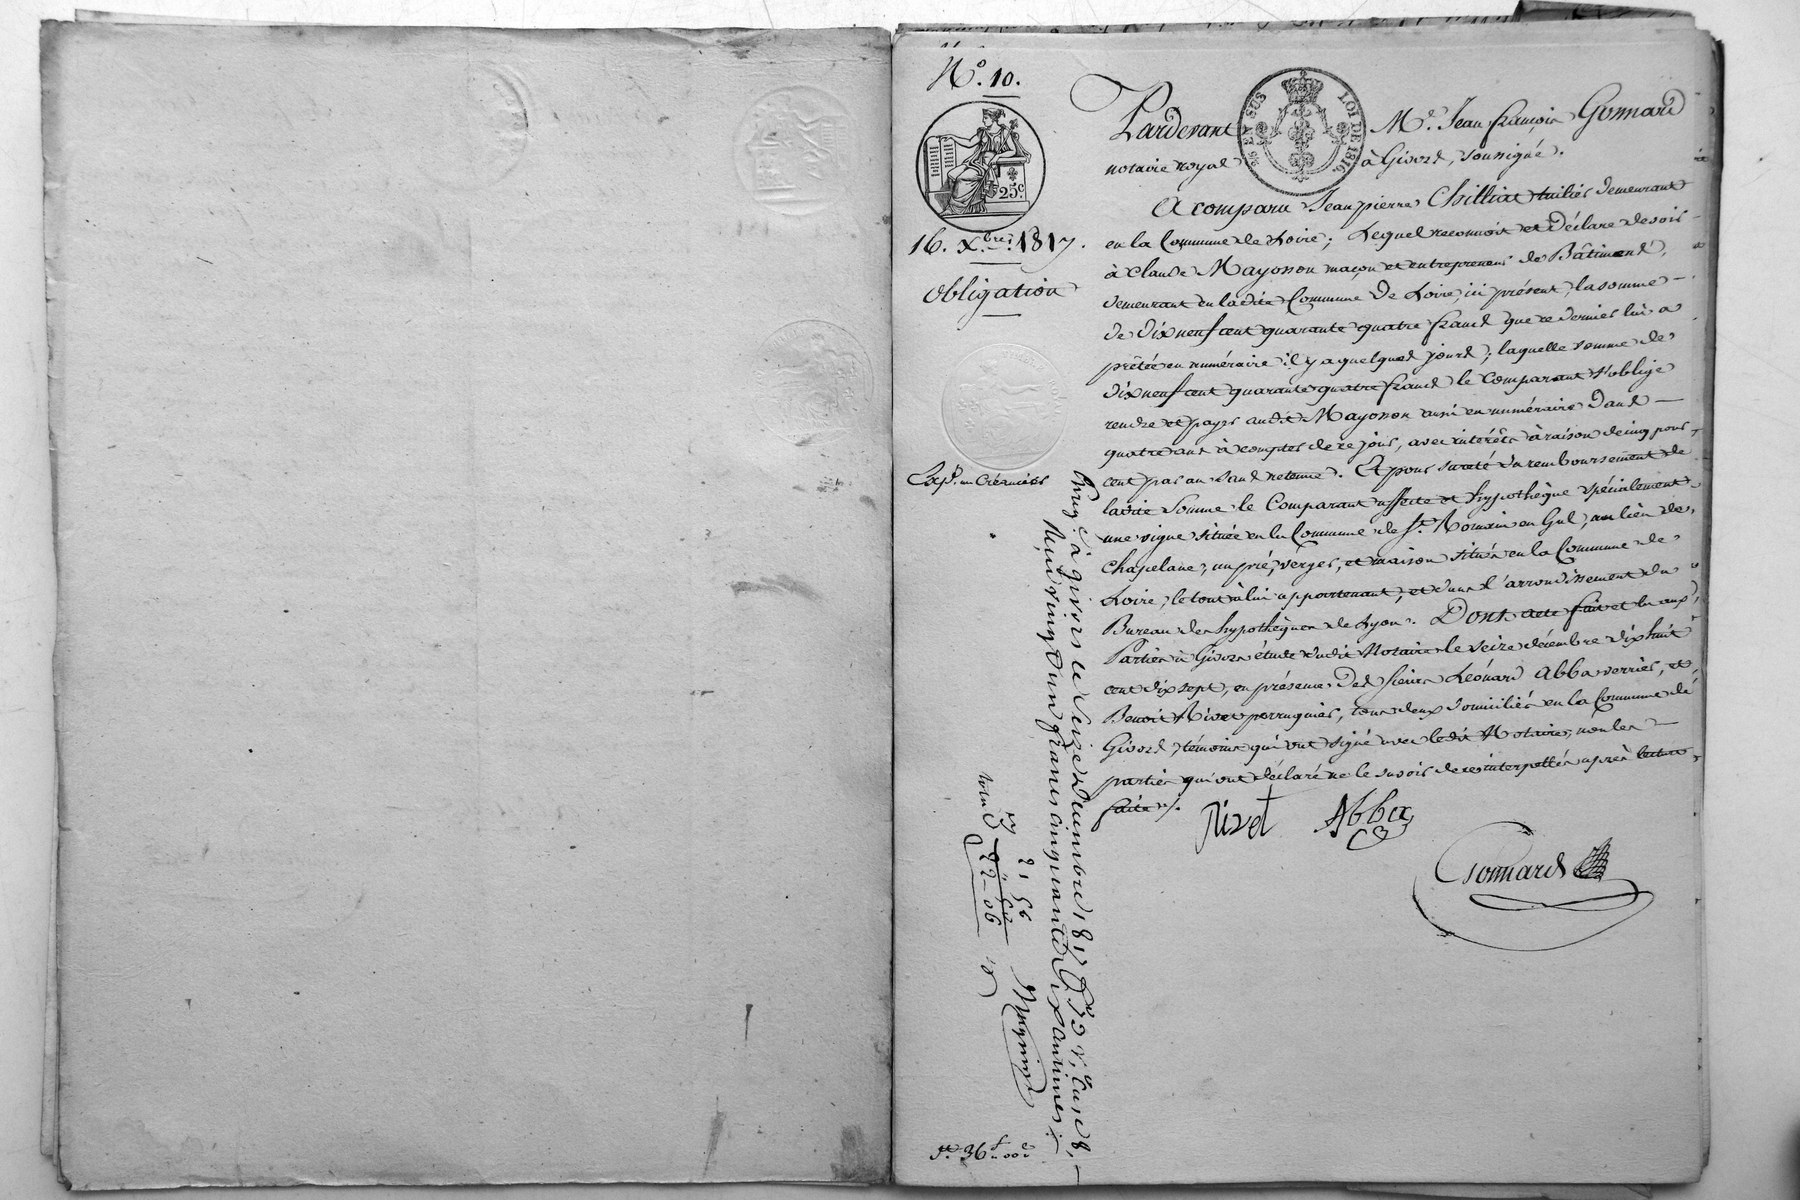 N.° 10.
25.c
16. Xbre. 1817.
Obligation
EN SUS
LOI DE 1816.
Pardevant M.e Jean françois Gonnard
notaire royal à Givors, soussigné.
A comparu Jean pierre Chilliat tuilier demeurant
en la Commune de Loire; Lequel reconnoit et Déclare devoir
à claude Mayosson maçon et entrepreneur de Bâtiments,
demeurant en ladite Commune de Loire, ici présent, la somme
de dix neuf cent quarante quatre francs que ce dernier lui a
prêtée en numéraire il y a quelques jours; laquelle somme de
dix neuf cent quarante quatre francs le Comparant s'oblige
rendre et payer audit Mayosson aussi en numéraire Dans
quatre ans à compter de ce jour, avec intérêts à raison de cinq pour
cent par an sans retenue. Et pour sureté du remboursement de
ladite Somme le Comparant affecte et hypothèque spécialement
une vigne située en la Commune de St. Romain en Gal, au lieu de
Chapelane, un pré, verger, et maison situés en la Commune de
Loire, le tout à lui appartenant, et dans l'arrondissement du
Bureau des hypothèques de Lyon. Dont acte fait et lu aux
Parties à Givors étude dudit Notaire le seize décembre dix huit
cent dix sept, en présence Des sieurs Léonard Abba verrier, et
Benoit Rivet perruquier, tous deux domiciliés en la Commune de
Givors, témoins qui ont signé avec ledit Notaire, non les
parties qui ont déclaré ne le savoir de ce interpellés après lecture
faite ./.
Rivet Abba
Gonnard
Enreg. à givors le Seize décembre 1817
Reçu vingt un francs cinquante six centimes
21 56
22 06
36f 00c